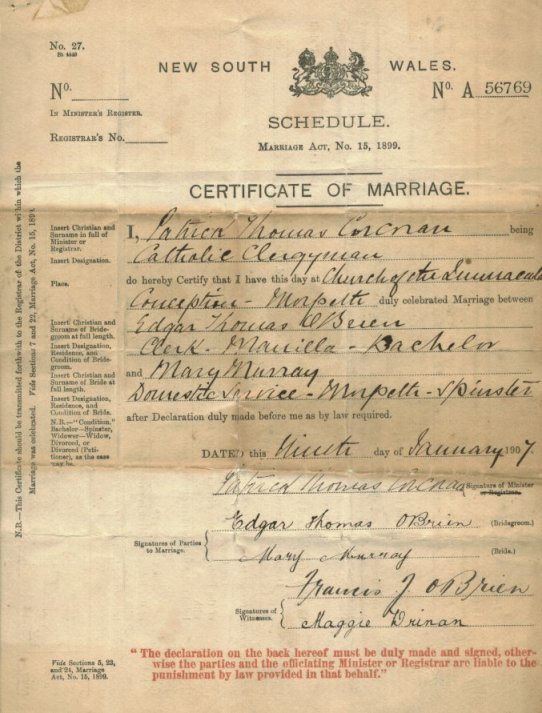 No. 27.
NEW SOUTH WALES.
No.
No. A 56769
IN MINISTER'S REGISTER.
REGISTRAR'S No.
SCHEDULE.
MARRIAGE ACT, No. 15, 1899.
CERTIFICATE OF MARRIAGE.
Insert Christian and Surname in full of Minister or Registrar.
I, Patrick Thomas Corcoran being
Insert Designation.
Catholic Clergyman
Place.
do hereby Certify that I have this day at Church of the Immaculate
Conception - Morpeth duly celebrated Marriage between
Insert Christian and Surname of Bridegroom at full length.
Edgar Thomas O'Brien
Insert Designation, Residence, and Condition of Bridegroom.
Clerk - Manilla - Bachelor
Insert Christian and Surname of Bride at full length.
and Mary Murray
Insert Designation, Residence, and Condition of Bride.
Domestic Service - Morpeth - Spinster
N.B.—"Condition," Bachelor—Spinster, Widower—Widow, Divorced, or Divorced (Petitioner), as the case may be.
after Declaration duly made before me as by law required.
DATED this Ninth day of January 1907.
Patrick Thomas Corcoran Signature of Minister
or Registrar.
Signatures of Parties to Marriage.
Edgar Thomas O'Brien (Bridegroom.)
Mary Murray (Bride.)
Signatures of Witnesses.
Francis J O'Brien
Maggie Drinan
Vide Sections 5, 23, and 24, Marriage Act, No. 15, 1899.
"The declaration on the back hereof must be duly made and signed, other-
wise the parties and the officiating Minister or Registrar are liable to the
punishment by law provided in that behalf."
N.B.—This Certificate should be transmitted forthwith to the Registrar of the District within which the
Marriage was celebrated. Vide Sections 7 and 22, Marriage Act, No. 15, 1899.